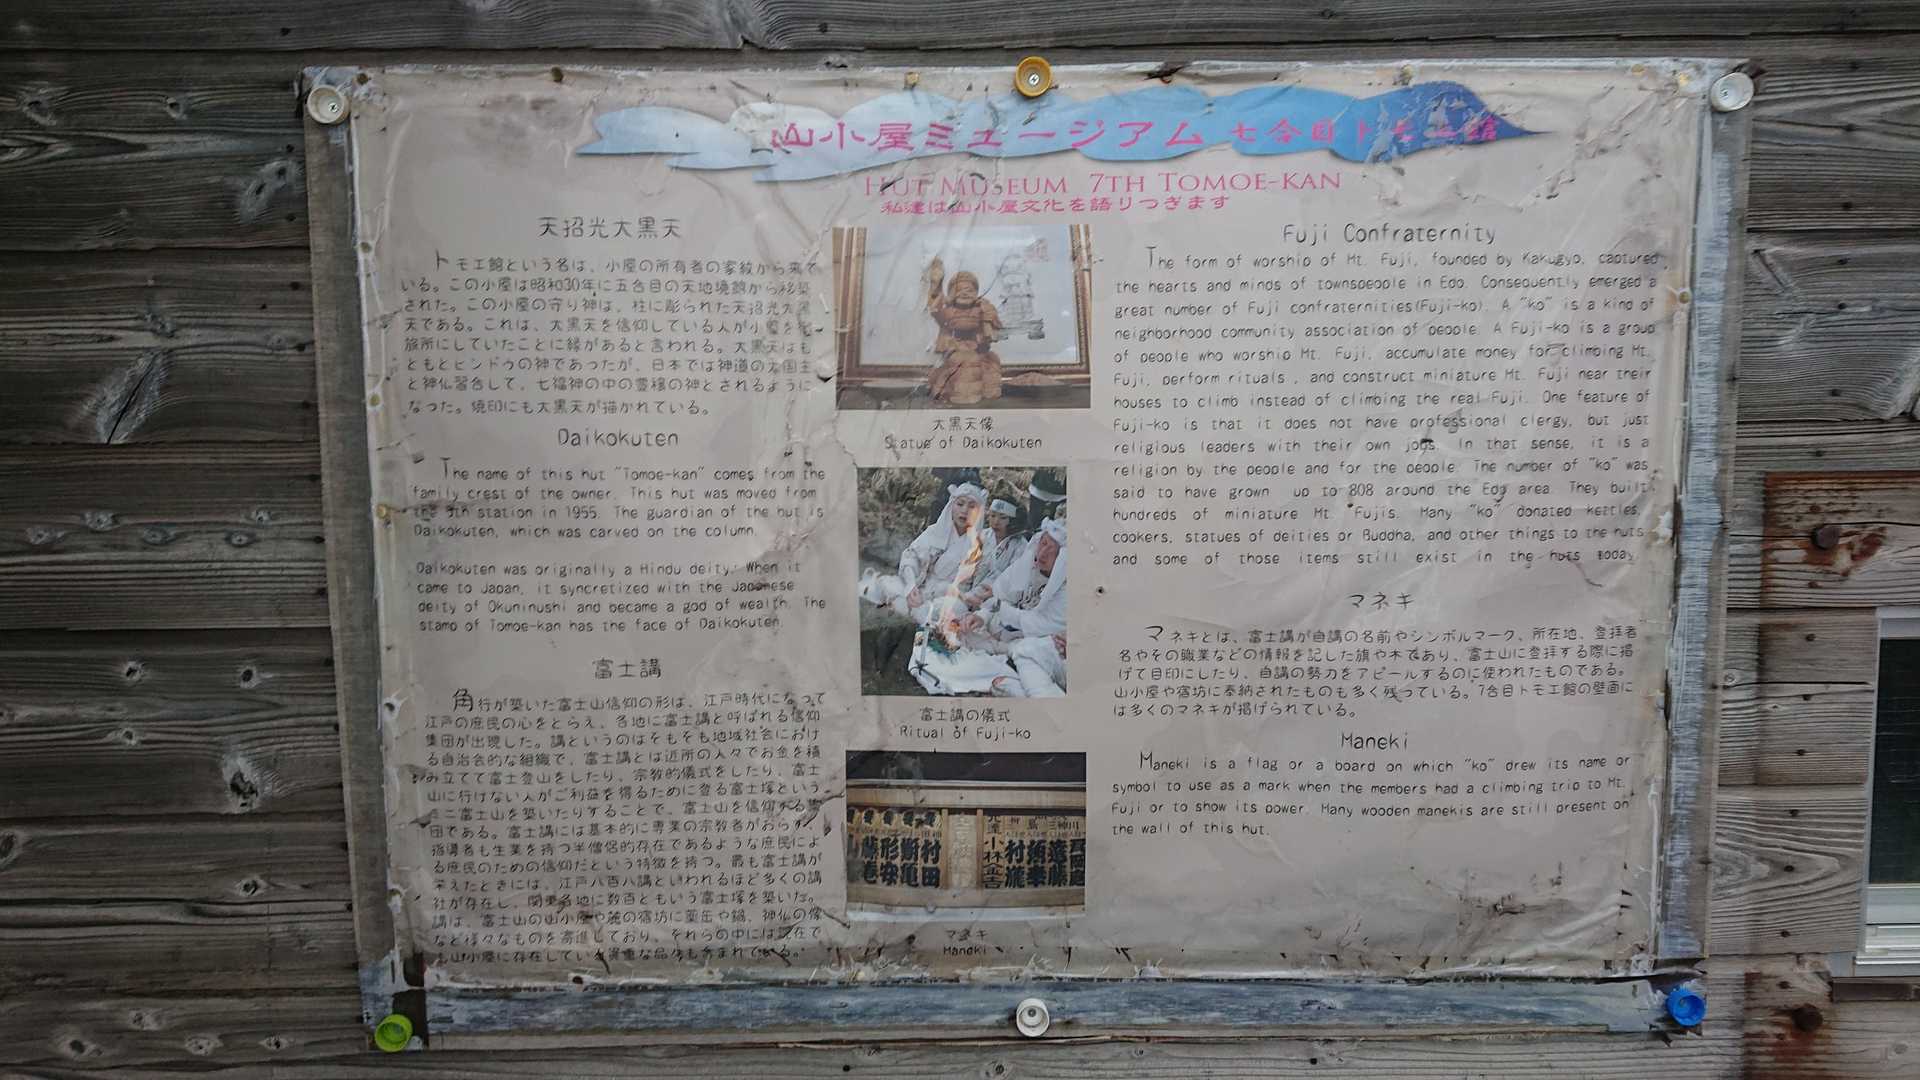 山小屋ミュージアム 七合目トモエ館
HUT MUSEUM 7TH TOMOE-KAN
私達は山小屋文化を語りつぎます
天招光大黒天
トモエ館という名は、小屋の所有者の家紋から来て
いる。この小屋は昭和30年に五合目の天地境館から移築
された。この小屋の守り神は、柱に彫られた天招光大黒
天である。これは、大黒天を信仰している人が小屋を
旅所にしていたことに縁があると言われる。大黒天はも
ともとヒンドゥの神であったが、日本では神道の大国主
と神仏習合して、七福神の中の豊穣の神とされるように
なった。焼印にも大黒天が描かれている。
Daikokuten
The name of this hut "Tomoe-kan" comes from the
family crest of the owner. This hut was moved from
the 5th station in 1955. The guardian of the hut is
Daikokuten, which was carved on the column.
Daikokuten was originally a Hindu deity. When it
came to Japan, it syncretized with the Japanese
deity of Okuninushi and became a god of wealth. The
stamp of Tomoe-kan has the face of Daikokuten.
富士講
角行が築いた富士山信仰の形は、江戸時代になって
江戸の庶民の心をとらえ、各地に富士講と呼ばれる信仰
集団が出現した。講というのはそもそも地域社会におけ
る自治会的な組織で、富士講とは近所の人々でお金を積
み立てて富士登山をしたり、宗教的儀式をしたり、富士
山に行けない人がご利益を得るために登る富士塚という
ミニ富士山を築いたりすることで、富士山を信仰する集
団である。富士講には基本的に専業の宗教者がおらず、
指導者も生業を持つ半僧侶的存在であるような庶民によ
る庶民のための信仰だという特徴を持つ。最も富士講が
栄えたときには、江戸八百八講といわれるほど多くの講
社が存在し、関東各地に数百ともいう富士塚を築いた。
講は、富士山の山小屋や麓の宿坊に薬缶や鍋、神仏の像
など様々なものを寄進しており、それらの中には現在で
も山小屋に存在している貴重な品々も含まれている。
大黒天像
Statue of Daikokuten
富士講の儀式
Ritual of Fuji-ko
村田
小林正吉
マネキ
Maneki
Fuji Confraternity
The form of worship of Mt. Fuji, founded by Kakugyo, captured
the hearts and minds of townspeople in Edo. Consequently emerged a
great number of Fuji confraternities(Fuji-ko). A "ko" is a kind of
neighborhood community association of people. A Fuji-ko is a group
of people who worship Mt. Fuji, accumulate money for climbing Mt.
Fuji, perform rituals , and construct miniature Mt. Fuji near their
houses to climb instead of climbing the real Fuji. One feature of
Fuji-ko is that it does not have professional clergy, but just
religious leaders with their own jobs. In that sense, it is a
religion by the people and for the people. The number of "ko" was
said to have grown up to 808 around the Edo area. They built
hundreds of miniature Mt. Fujis. Many "ko" donated kettles,
cookers, statues of deities or Buddha, and other things to the huts
and some of those items still exist in the huts today.
マネキ
マネキとは、富士講が自講の名前やシンボルマーク、所在地、登拝者
名やその職業などの情報を記した旗や木であり、富士山に登拝する際に掲
げて目印にしたり、自講の勢力をアピールするのに使われたものである。
山小屋や宿坊に奉納されたものも多く残っている。7合目トモエ館の壁面に
は多くのマネキが掲げられている。
Maneki
Maneki is a flag or a board on which "ko" drew its name or
symbol to use as a mark when the members had a climbing trip to Mt.
Fuji or to show its power. Many wooden manekis are still present on
the wall of this hut.